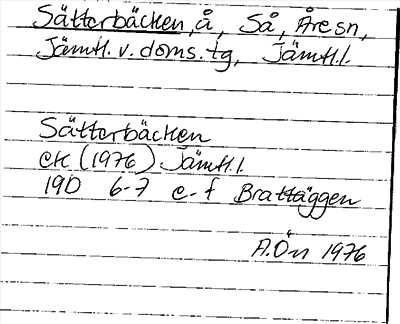 Sätterbäcken, å, Så, Åre sn,
Jämtl. v. doms. tg, Jämtl. l.
Sätterbäcken
ek (1976) Jämtl. l.
19D 6-7 e-f Brattäggen
A.Ön 1976